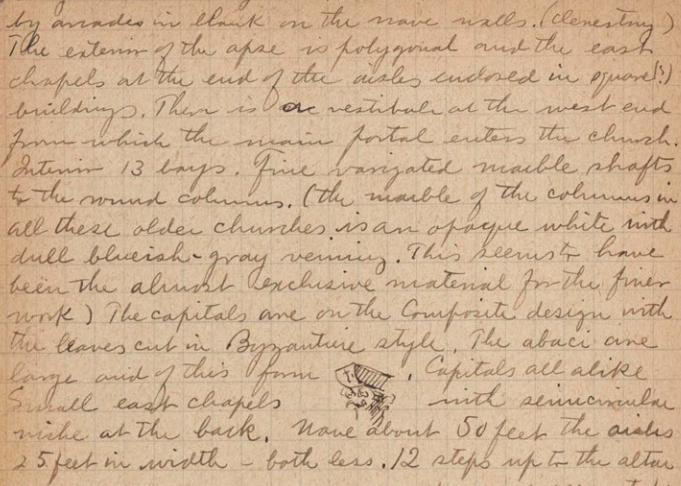 by arcades in blank on the nave walls. (clerestory)
The exterior of the apse is polygonal and the east
chapels at the end of the aisles enclosed in square (?)
buildings. There is a vestibule at the west end
from which the main portal enters the church.
Interior 13 bays. fine varigated marble shafts
to the round columns. (the marble of the columns in
all these older churches is an opaque white with
dull blueish-gray veining. This seems to have
been the almost exclusive material for the finer
work) The capitals are on the Composite design with
the leaves cut in Byzantine style. The abaci are
large and of this form . Capitals all alike
Small east chapels with semicircular
niche at the back. Nave about 50 feet the aisles
25 feet in width - both less. 12 steps up to the altar